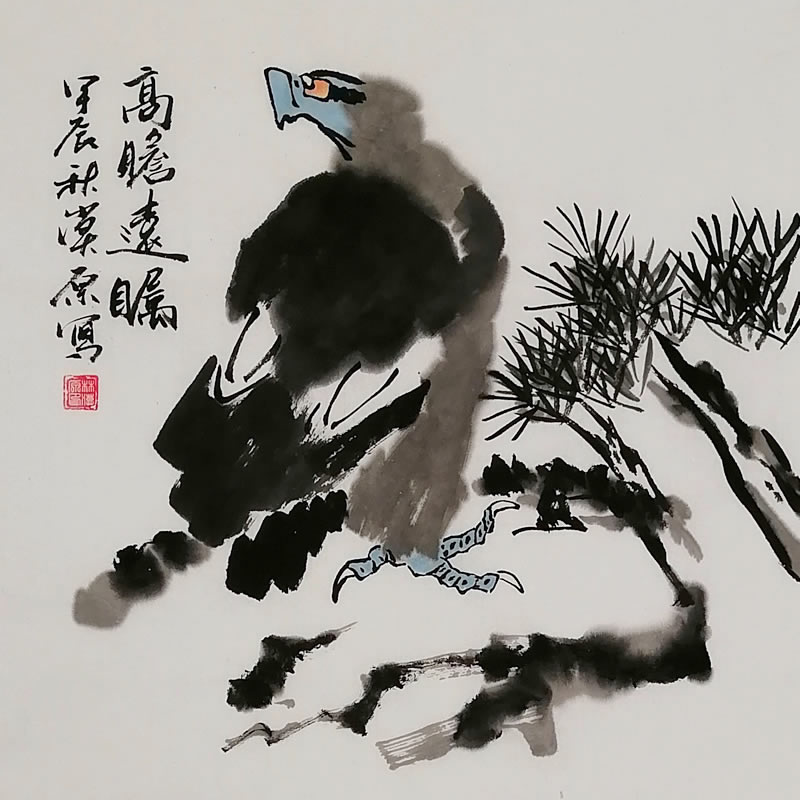 高瞻遠矚
甲辰秋漠原寫